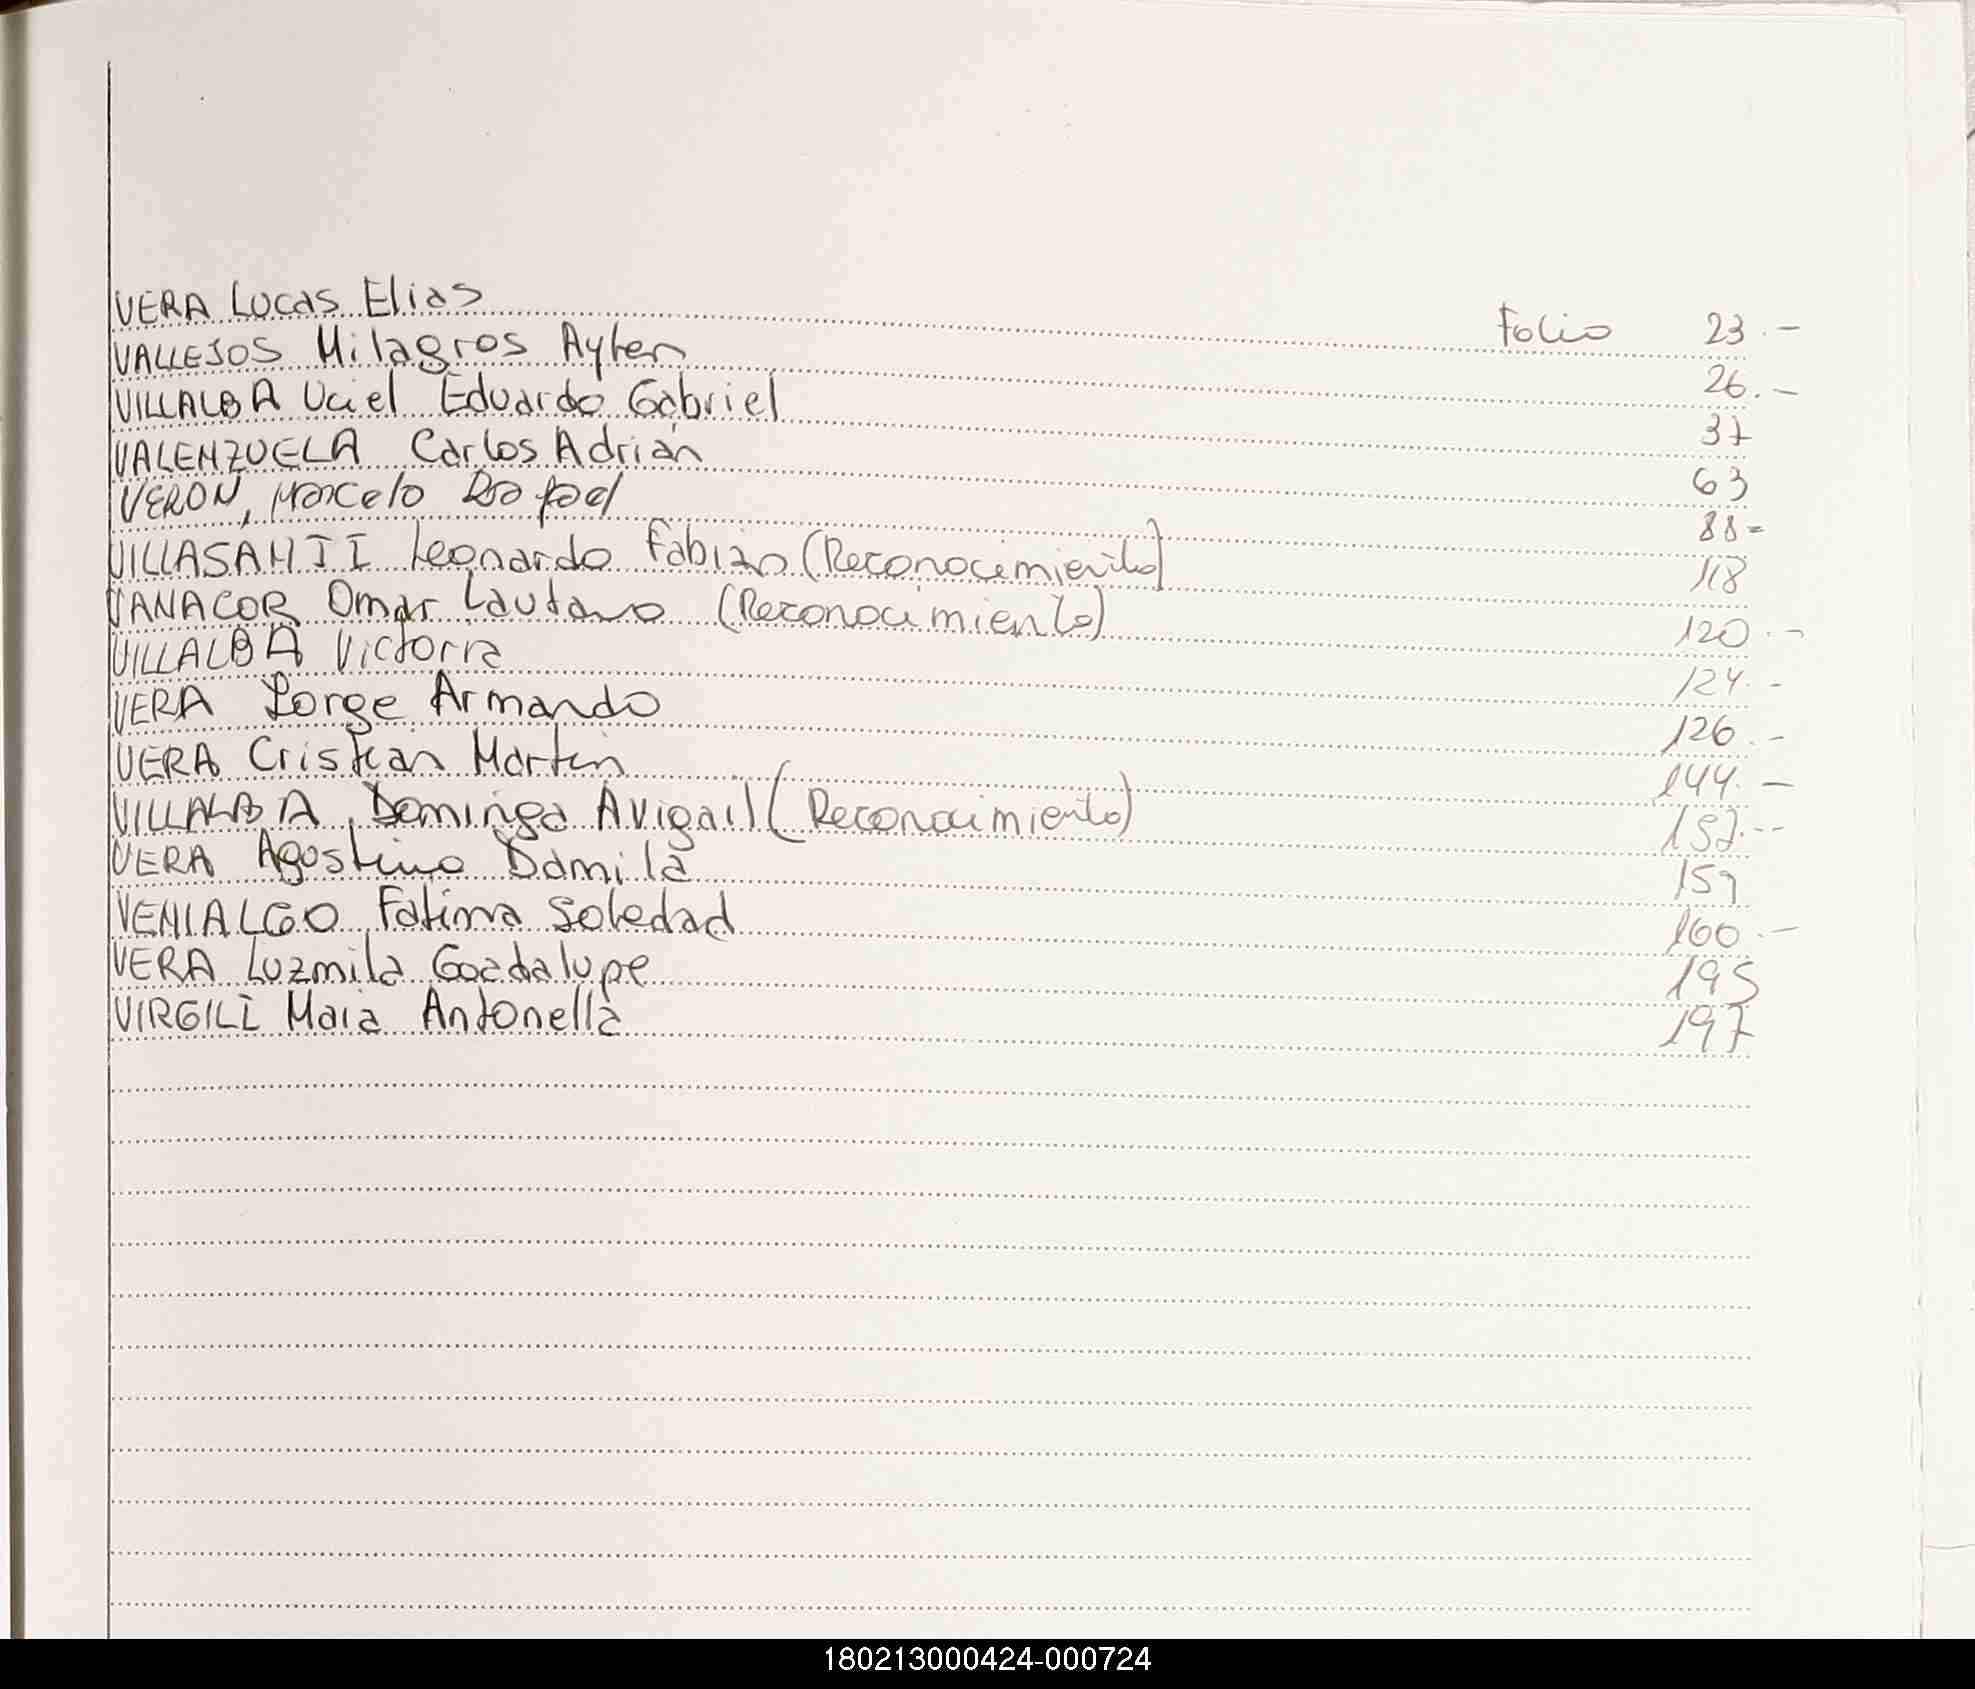 VERA Lucas Elias Folio 23.-
VALLEJOS Milagros Aylen 26.-
VILLALBA Uciel Eduardo Gabriel 37
VALENZUELA Carlos Adrián 63
VERON, Marcelo Rafael 88=
VILLASANTI Leonardo Fabian (Reconocimiento) 118
VANACOR Omar Lautaro (Reconocimiento) 120.-
VILLALBA Victoria 124.-
VERA Jorge Armando 126.-
VERA Cristian Martin 144.-
VILLALBA Dominga Avigail (Reconocimiento)
VERA Agostino Damila 159
VENIALGO Fatima Soledad 160.-
VERA Luzmila Goadalupe 195
VIRGILI Maia Antonella 197
180213000424-000724